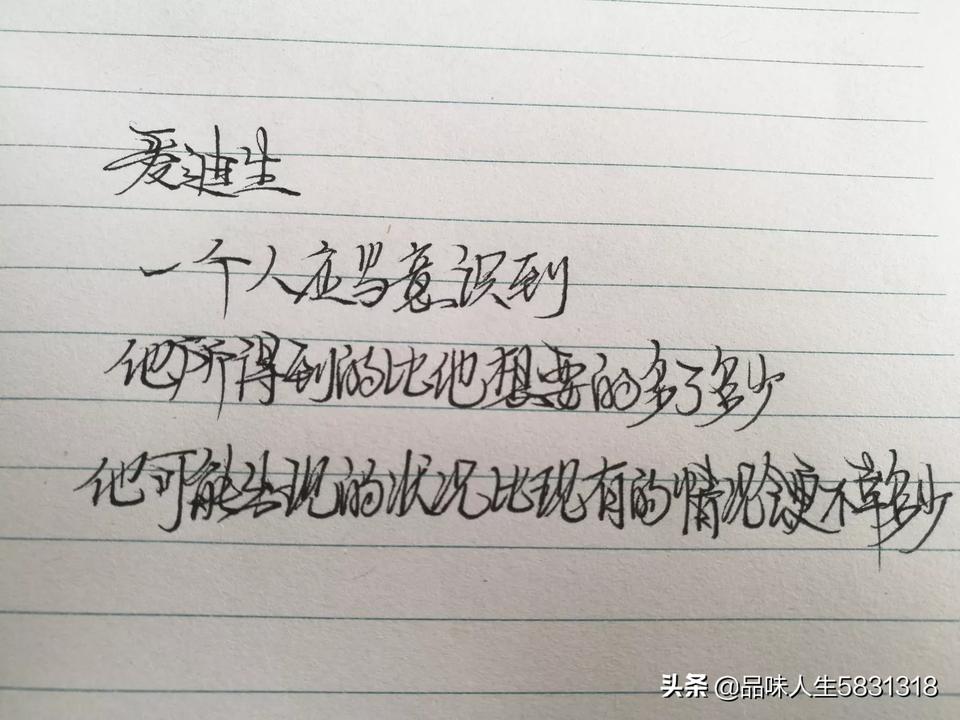 爱迪生
一个人应当意识到
他所得到的比他想要的多了多少
他可能出现的状况比现有的情况会更不幸多少
头条 @品味人生5831318